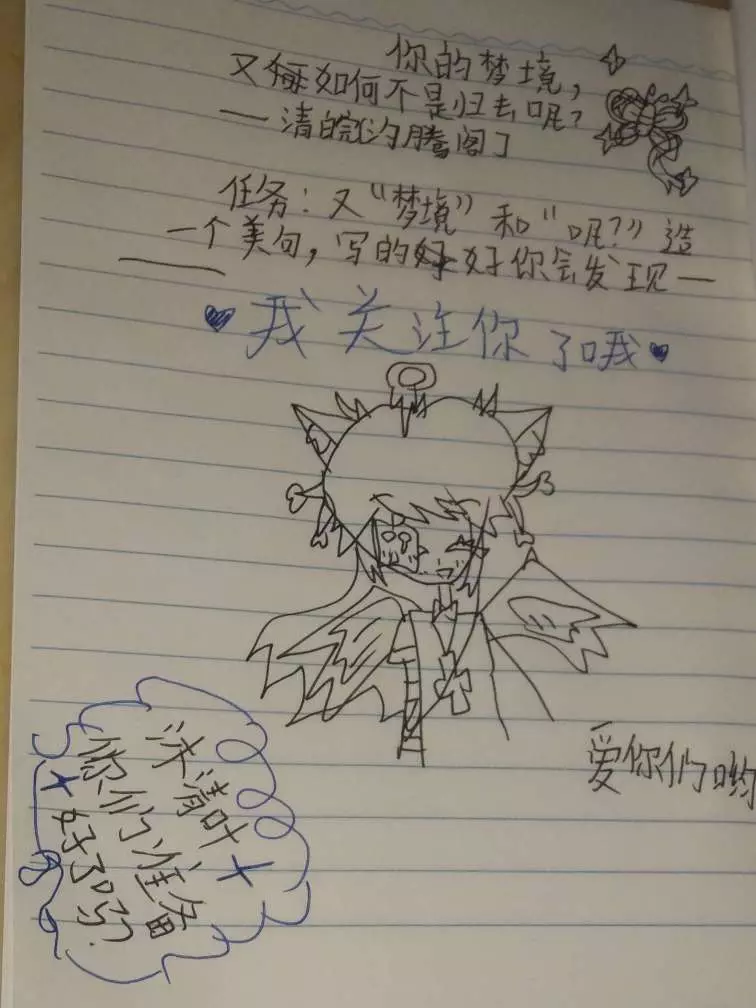 你的梦境，
又如何不是归去呢？
——清皖汐腾阁了
任务：又“梦境”和“呢？”造
一个美句，写的好你会发现——
我关注你了哦
爱你们哟
沐清叶
你们准备
好了吗？